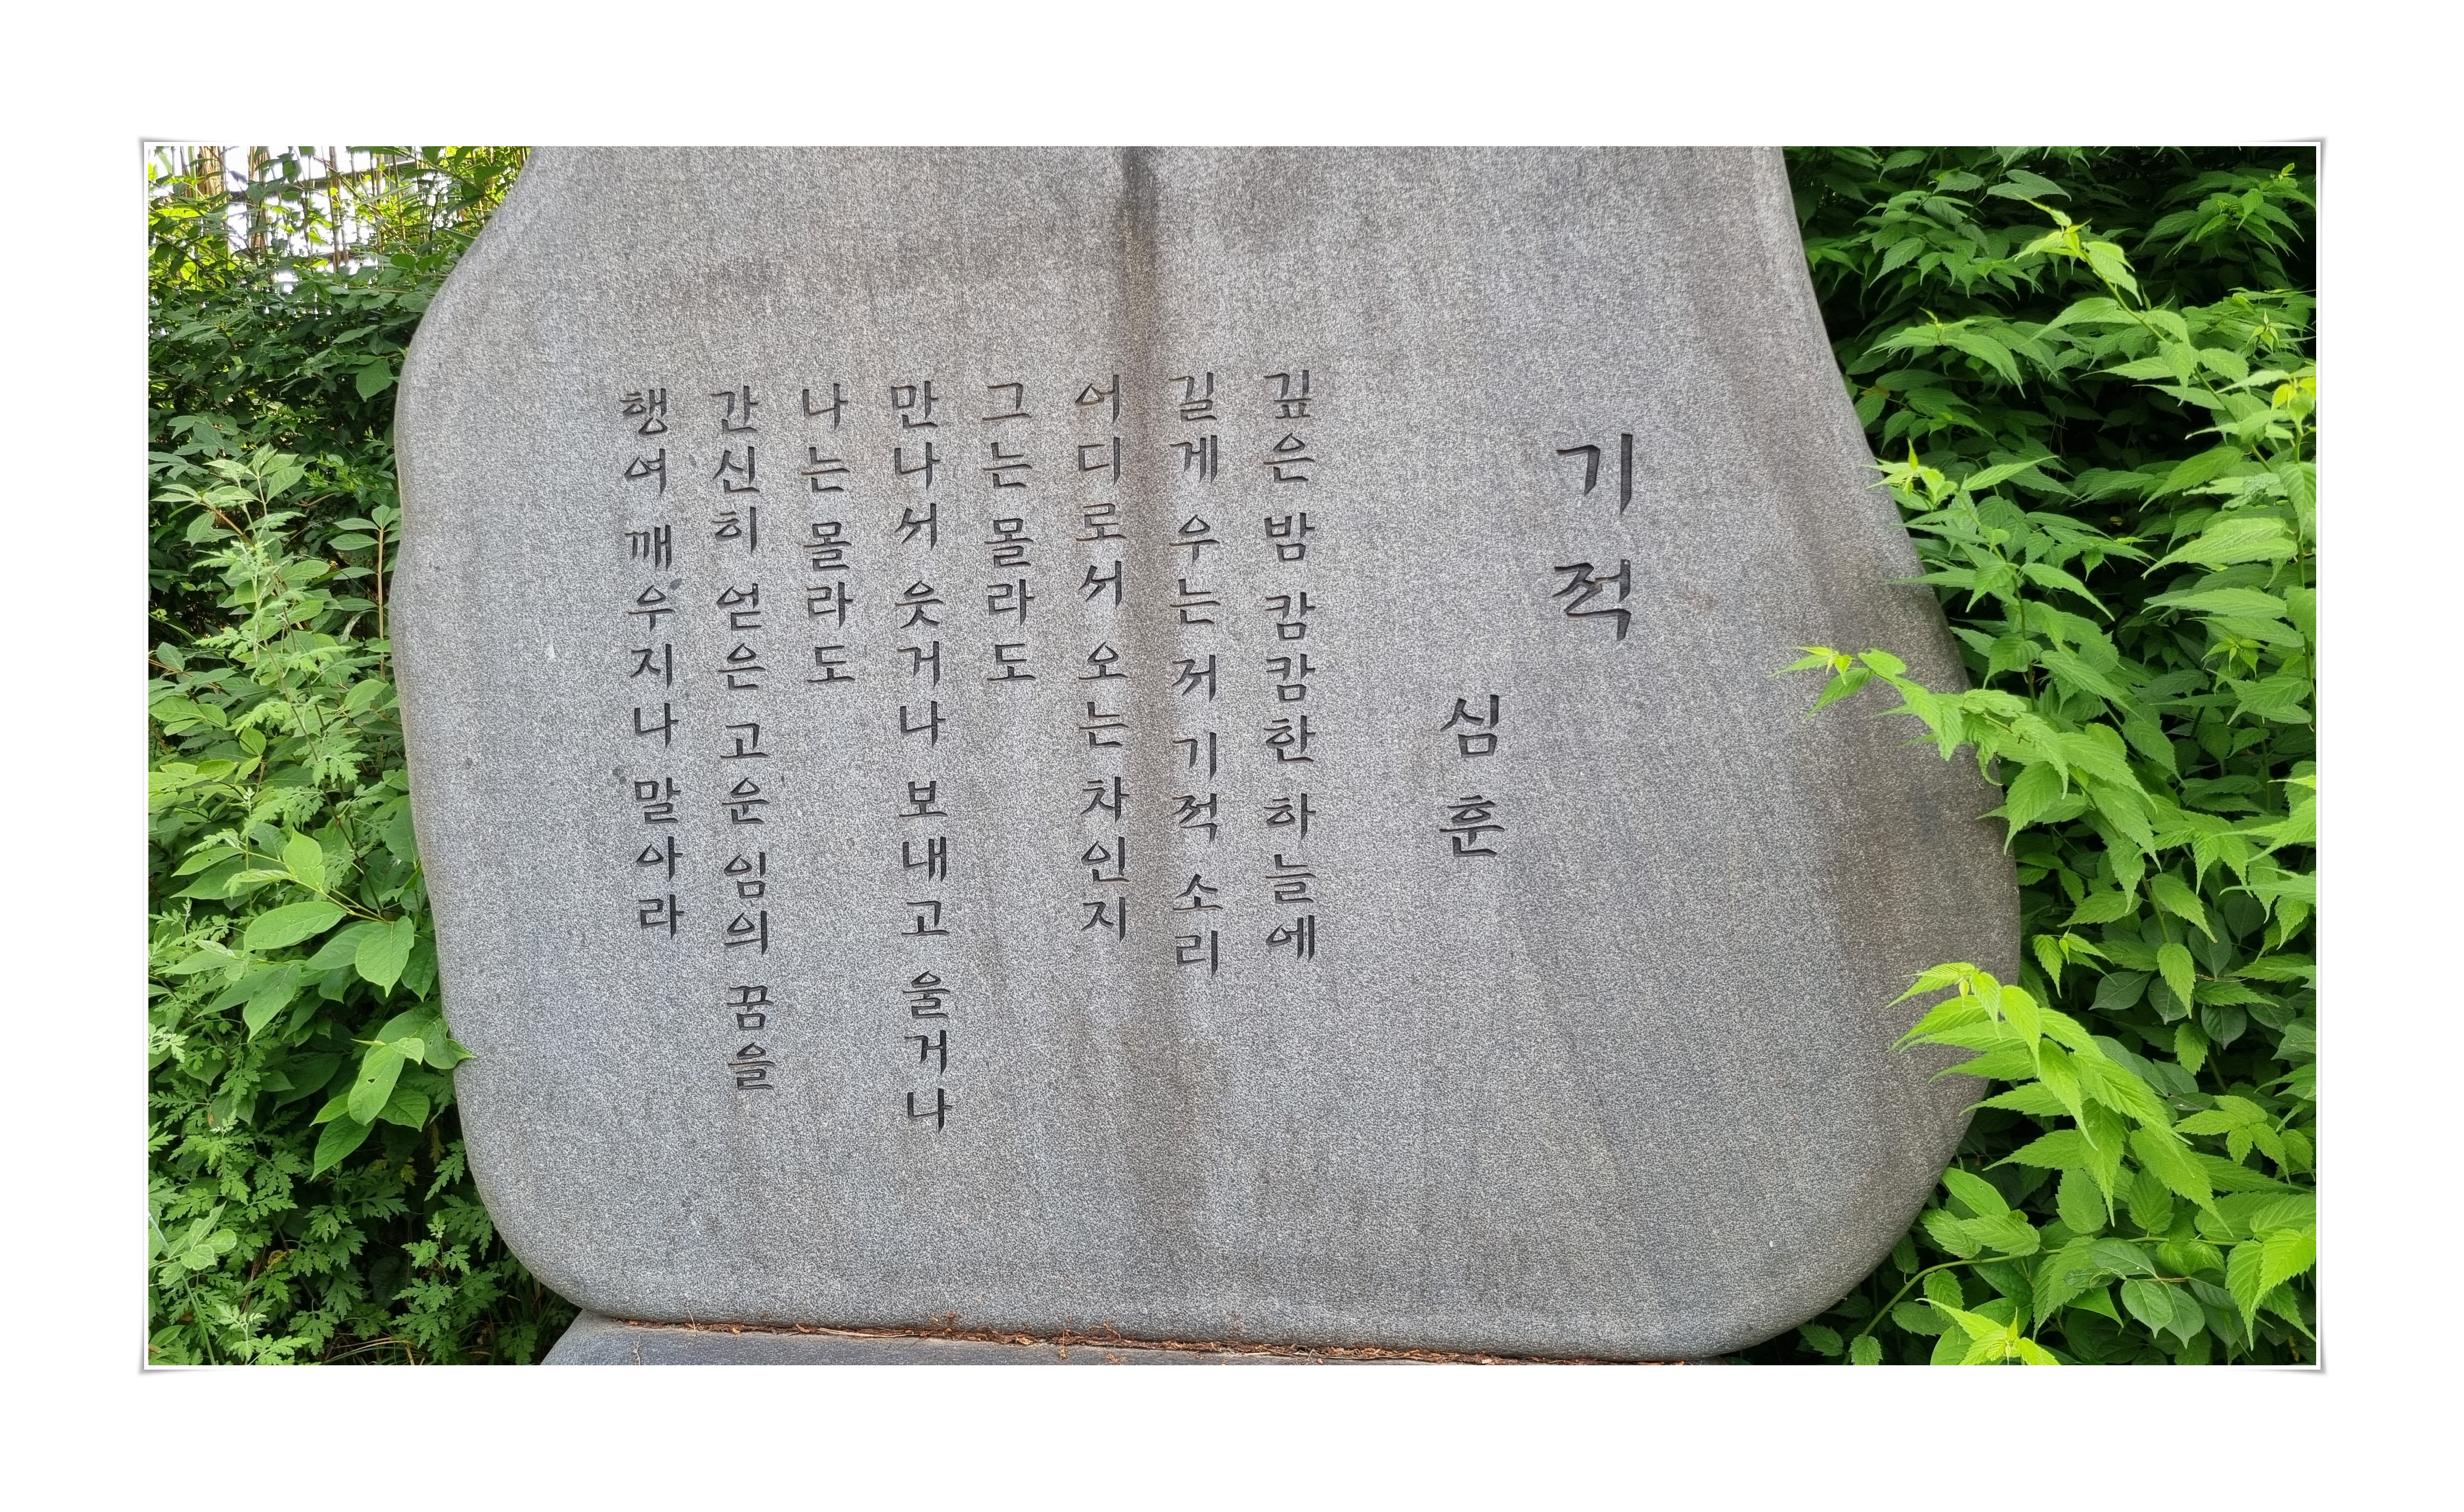 기적
심훈
깊은 밤 캄캄한 하늘에
길게 우는 저 기적 소리
어디로서 오는 차인지
그는 몰라도
만나서 웃거나 보내고 울거나
나는 몰라도
간신히 얻은 고운 임의 꿈을
행여 깨우지나 말아라